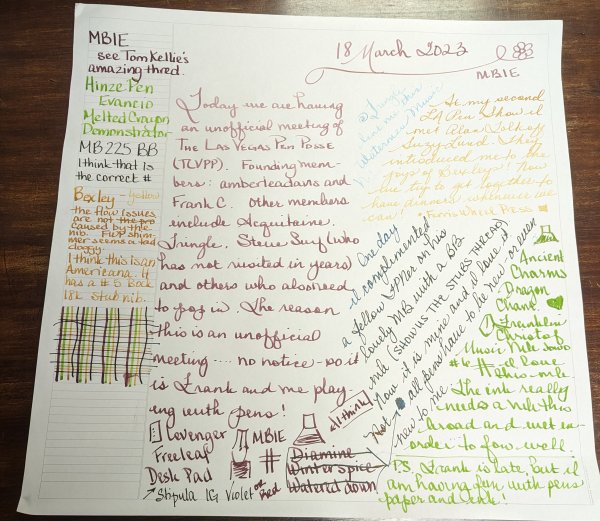 MBIE
see TomKellie's
amazing thred.
Hinze Pen
Evancio
Melted Crayon
Demonstrator
MB 225 BB
I think that is
the correct #
Bexley - yellow
the flow issues
are not the pro
caused by the
nib. FWP shim-
mer seems a tad
cloggy.
I think this is an
Americana. It
has a #5 Bock
18k stub nib.
18 March 2023
MBIE
Today we are having
an unofficial meeting of
The Las Vegas Pen Posse
(TLVPP). Founding mem-
bers: amberleadavis and
Frank C. Other members
include Acquitaine,
Jungle, Steve Surf (who
has not visited in years)
and others who also need
to pop in. The reason
this is an unofficial
meeting .... no notice - so it
is Frank and me play-
ing with pens!
Levenger
Freeleaf
Desk Pad
MBIE
#
Diamine
Winter spice
Watered down
Stipula IG Violet or Red
I think
Jungle
Watermed Music
At my second
LA Pen Show I
met Alan
Suzy Lund. They
introduced me to the
joys of Bexley! Now
we try to get together to
have dinners whenever we
can! Ferris Wheel Press
One day
I complemented
a fellow FPNer on his
lovely MB with a BB
nib (SHOW US THE STUBS THREAD)
Now it is mine and I love it
Not all pens have to be new - or even
new to me.
Ancient
Charms
Dragon
Chane
Franklin
Christof
Music Nib
#6 I love
this nib
The ink really
needs a nib this
broad and wet in
order to flow well.
P.S. Frank is late, but I
am having fun with pens
paper and ink!